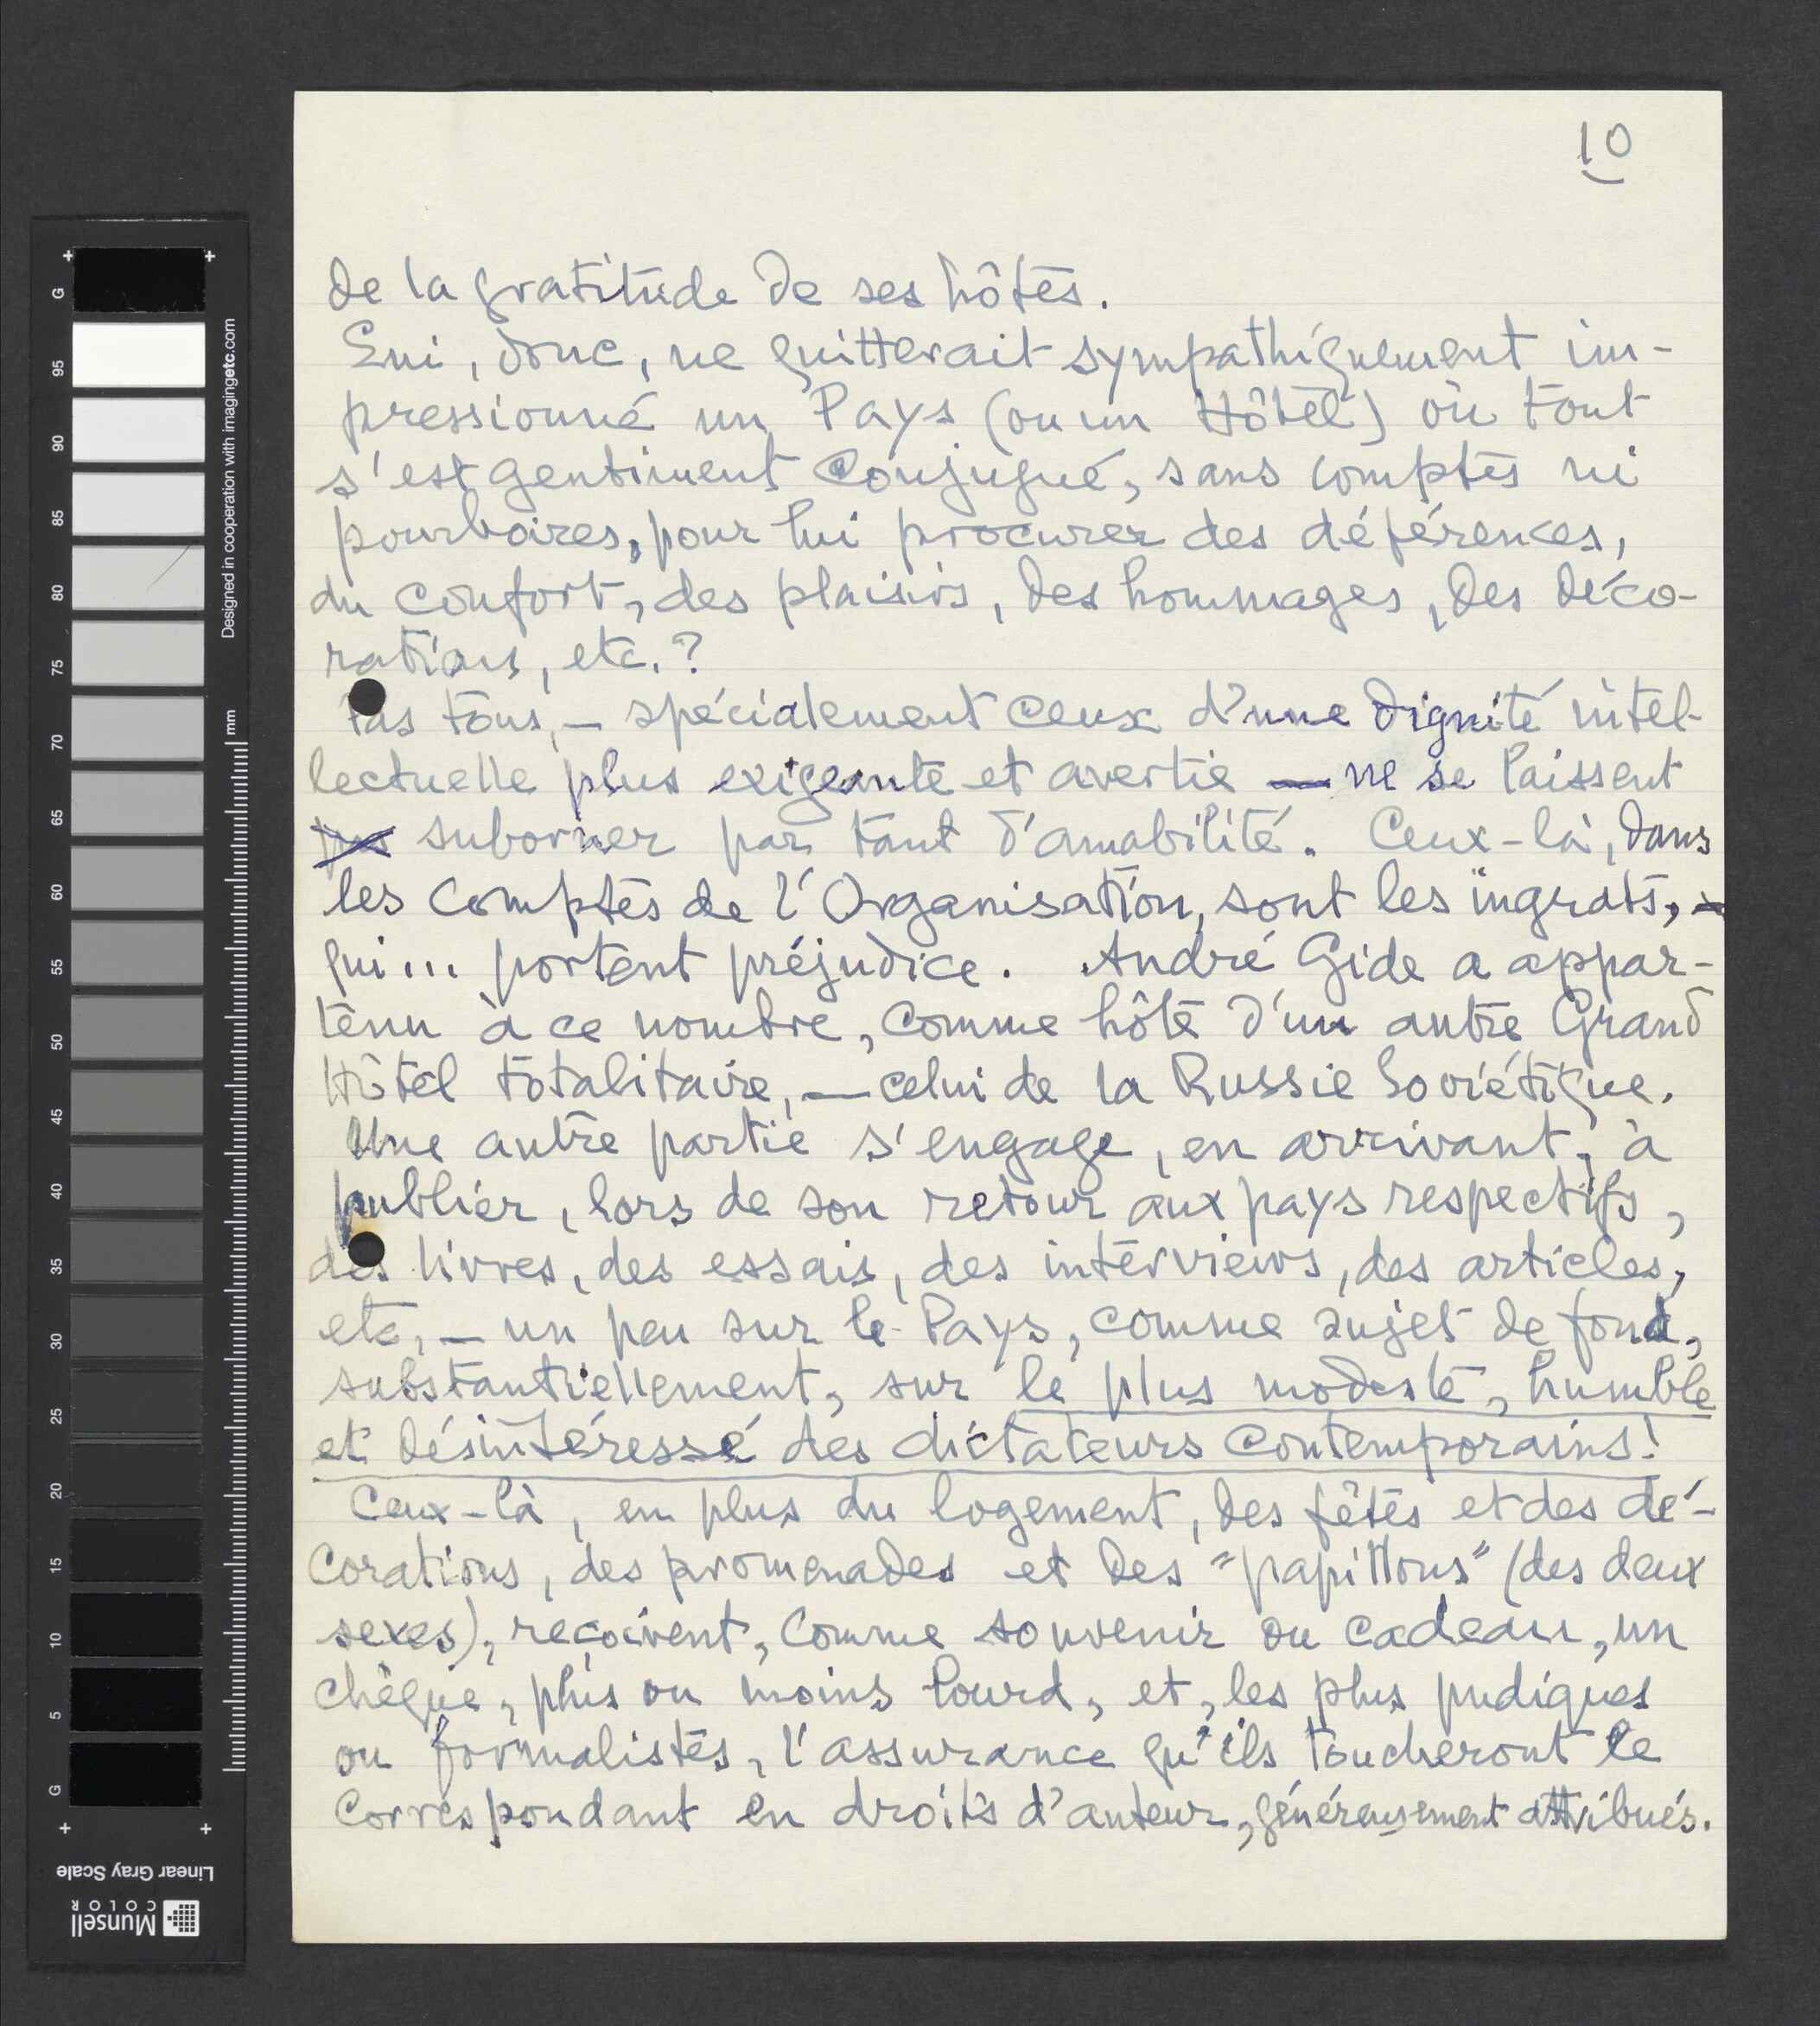 10
de la gratitude de ses hôtes.
Qui, donc, ne quitterait sympathiquement im-
pressionné un Pays (ou un Hôtel) où tout
s'est gentiment conjugué, sans comptes ni
pourboires, pour lui procurer des déférences,
du confort, des plaisirs, des hommages, des déco-
rations, etc.?
Pas tous, — spécialement ceux d'une dignité intel-
lectuelle plus exigeante et avertie — ne se laissent
pas suborner par tant d'amabilité. Ceux-là, dans
les comptes de l'Organisation, sont les ingrats, —
qui... portent préjudice. André Gide a appar-
tenu à ce nombre, comme hôte d'un autre Grand
Hôtel totalitaire, — celui de la Russie Soviétique.
Une autre partie s'engage, en arrivant, à
publier, lors de son retour aux pays respectifs,
des livres, des essais, des interviews, des articles,
etc, — un peu sur le Pays, comme sujet de fond,
substantiellement, sur le plus modeste, humble
et désintéressé des dictateurs contemporains!
Ceux-là, en plus du logement, des fêtes et des dé-
corations, des promenades et des "papillons" (des deux
sexes), reçoivent, comme souvenir ou cadeau, un
chèque, plus ou moins lourd, et, les plus pudiques
ou formalistes, l'assurance qu'ils toucheront le
correspondant en droits d'auteur, généreusement attribués.
G
95
90
85
80
75
70
65
60
55
50
45
40
35
30
25
20
15
10
5
G
mm
Designed in cooperation with imagingetc.com
Linear Gray Scale
Munsell
COLOR